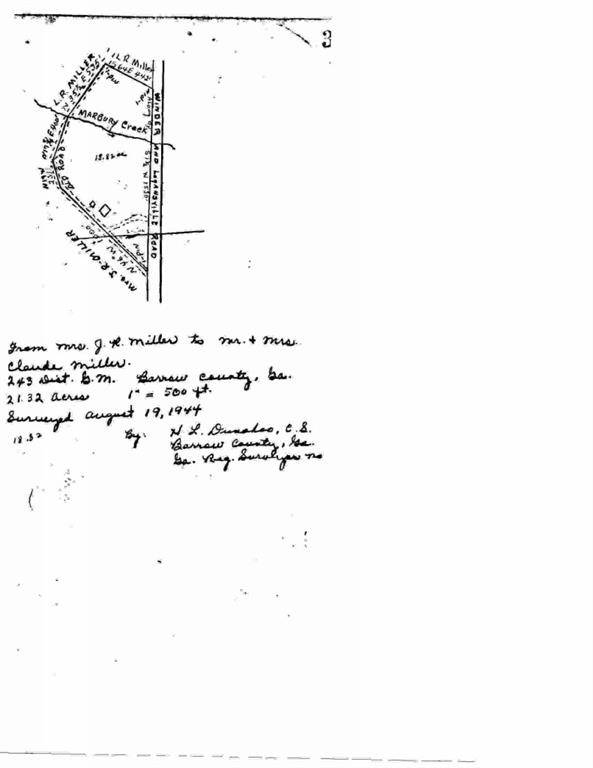 3
L.R. Miller
L.R. MILLER
MARBURY Creek
WINDER AND LOGANSVILLE ROAD
18.82 ac
OLD ROAD
Mrs J.R. MILLER
N 46 W
From Mrs. J. R. Miller to Mr. & Mrs.
Claude Miller.
243 Dist. G. M. Barrow County, Ga.
21.32 Acres 1" = 500 ft.
Surveyed August 19, 1944
18.82
By: H L. Dunahoo, C.S.
Barrow County, Ga.
Ga. Reg. Surveyor no